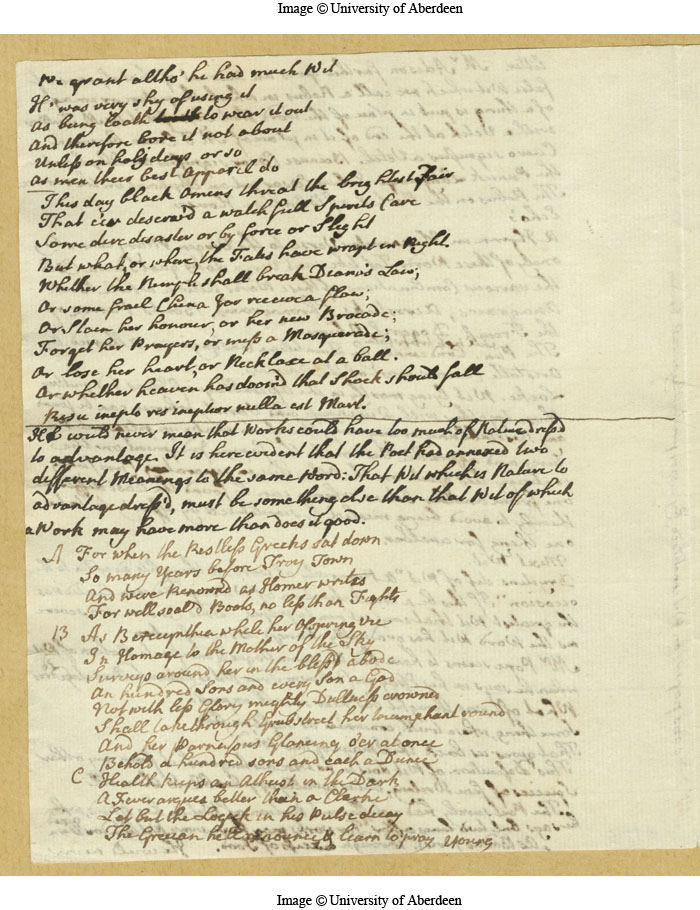 Image © University of Aberdeen
We grant altho' he had much Wit
He was very shy of using it
As being loath to wear it out
And therefore bore it not about
Unless on holy days or so
As men their best Apparel do
This day black Omens threat the brightest Fair
That e'er deserv'd a watchfull Spirits Care
Some dire disaster or by force or Slight
But what, or where, the Fates have wrapt in Night.
Whether the Nymph shall break Diana's Law;
Or some frael China Jar receive a flaw;
Or Stain her honour, or her new Brocade;
Forget her Prayers, or miss a Masquerade;
Or lose her heart, or Necklace at a ball.
Or whether heaven has doom'd that Shock should fall
Risu inepto res ineptior nulla est Mart.
He would never mean that Works could have too much of Nature dress'd
to advantage. It is here evident that the Poet had annexed two
different Meanings to the same Word: That Wit which is Nature to
advantage dress'd, must be something else than that Wit of which
a Work may have more than does it good.
A For when the Restless Greeks sat down
So many Years before Troy Town
And were Renownd as Homer writes
For well soal'd Boots, no less than Fights
B As Berecynthia while her Ofspring vie
In Homage to the Mother of the Sky
Surveys around her in the bless'd abode
An hundred Sons and every Son a God
Not with less Glory mighty Dullness crowned
Shall take through Grubstreet her triumphant round
And her Parnassus Glancing o'er at once
Behold a hundred sons and each a Dunce
C Health keeps an Atheist in the Dark
A Fever argues better than a Clerke
Let but the Logick in his Pulse decay
The Grecian he'll renounce & learn to pray Young
Image © University of Aberdeen